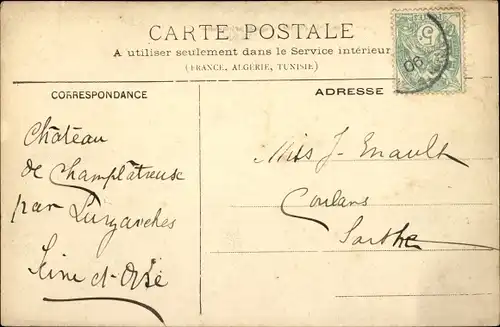 CARTE POSTALE
A utiliser seulement dans le Service intérieur
(FRANCE, ALGÉRIE, TUNISIE)
CORRESPONDANCE
Château
de Champlâtreuse
par Luzarches
Seine et-Oise
ADRESSE
Miss J. Enault
Coulans
Sarthe
5
06